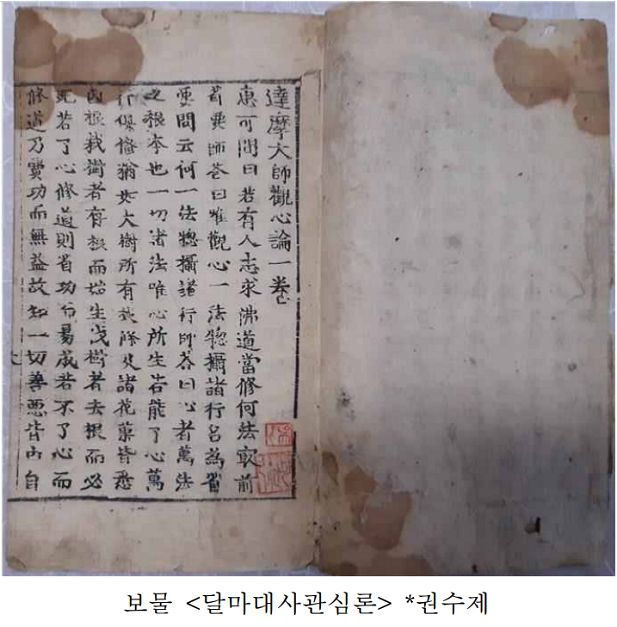 達摩大師觀心論一卷
惠可問曰若有人志求佛道當修何法㝡前
省要師荅曰唯觀心一法惣攝諸行名為省
要問云何一法惣攝諸行師荅曰心者萬法
之根本也一切諸法唯心所生若能了心萬
行俱俻猶如大樹所有枝條及諸花菓皆悉
因根栽樹者有根而始生伐樹者去根而必
死若了心修道則省功而易成若不了心而
修道乃費功而無益故知一切善惡皆由自
보물 <달마대사관심론> *권수제